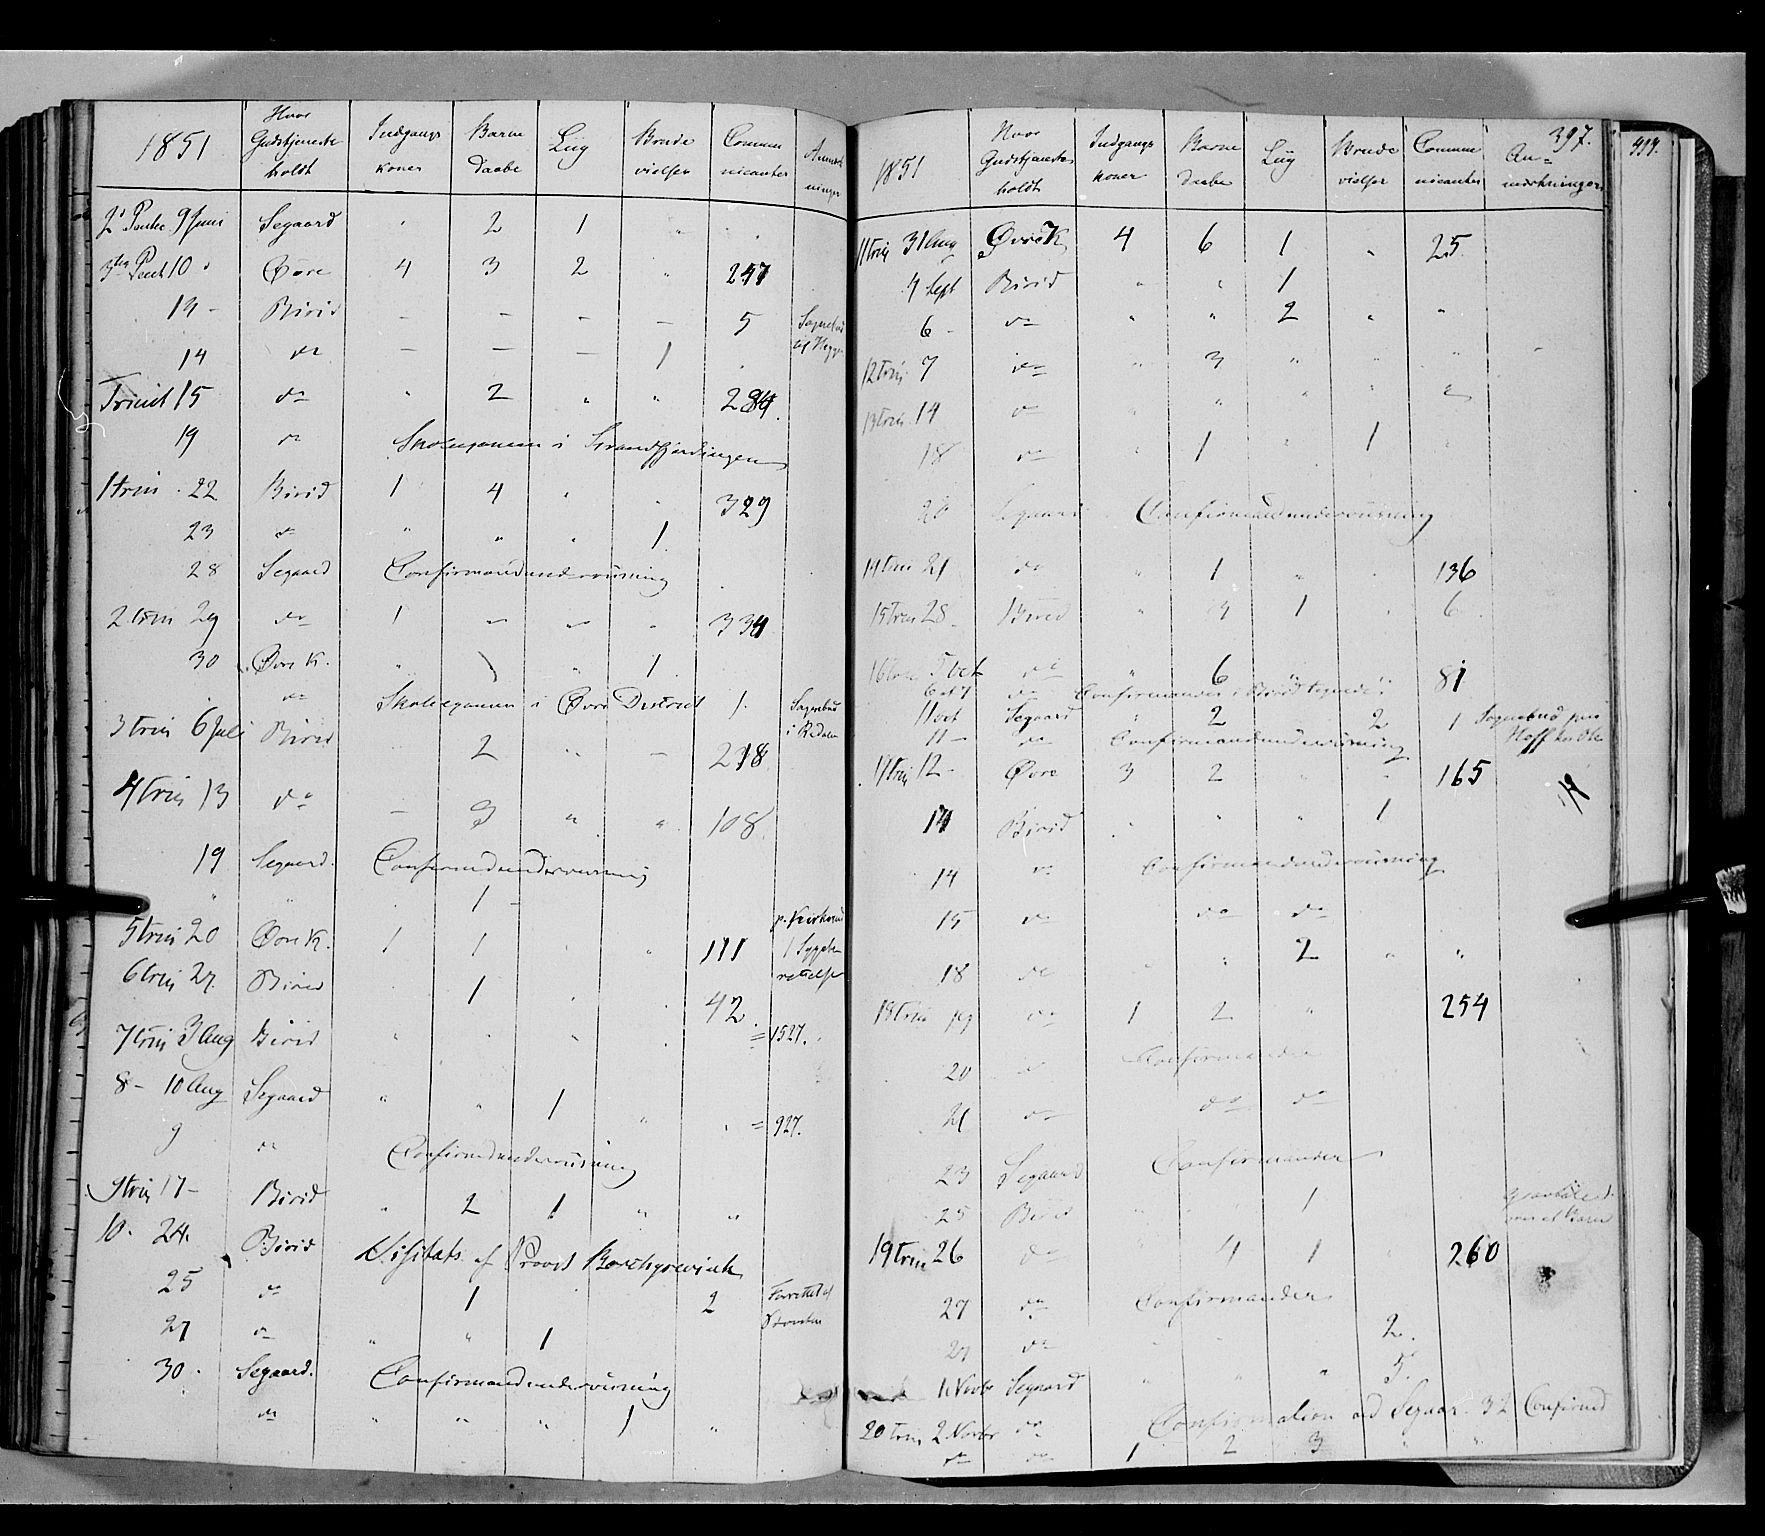 1851 Hvor Gudstjeneste holdt Indgangs koner Barne daabe Liig Brude vielser Commu nicanter Anmærk ninger
2d Pente. 9 Juni Segaard " 2 1 " "
3die Pent 10 Øvre 4 3 2 " 247
14 - Birid - - - - 5 Sognebud
14 do - - - 1
Trinit 15 do " 2 " " 284
19 do Skoleexamen i Strandfjerdingen
1 trin 22 Birid 1 4 " " 329
23 do " " " 1
28 Segaard Confirmandunderviisning
2 trin 29 do 1 - - " 334
30 Øvre K. " 1 " 1
do Skoleexamen i Øvre District 1. Sognebud
3 trin 6 Juli Birid 2 " - 218 i Redalen
4 trin 13 do - 3 " " 108
19 Segaard. Confirmdunderviisning
" " 1 -
5 trin 20 Øvre K. 1 1 " 111 1 Sygebe
6 trin 27. Birid 1 42 rettelse
7 trin 3 Aug Birid " " = 1527.
8 - 10 Aug Segaard " " 1 " = 927.
9 do Confirmdunderviisning
9 trin 17 - Birid " 2 1 " "
10. 24. Birid Visitats af Provst Borchgrevink
25 do 1 2 Forrettet af
27 do " " 1
30. Segaard. Confirmandunderviisning
do " " " 1 "
397.
1851 Hvor Gudstjeneste holdt Indgangs koner Barne daabe Liig Brude vielser Commu nicanter An= mærkninger
11 trin 31 Aug Øvre K 4 6 1 " 25
4 Sept Birid " " 1
6 - do " " 2 " "
12 trin 7 do " 3 " " "
13 trin 14 do " " " " "
18 do " 1 " 1 "
20 Segaard Confirmandunderviisning
14 trin 21 do " 1 " " 136
15 trin 28. Birid " 4 1 " 6
16 trin 5 oct do " 6 " " 81
6 et 7 do Confirmander i Birid
11 oct Segaard " 2 2 1 Sognebud paa
11 - do Confirmandunderviisning
17 trin 12 - Øvre 3 2 " " 165
14 Birid " " " 1
14 do Confirmandunderviisning
15 do do do
18 do " " 2 " "
18 trin 19 do 1 2 " 254
20 do Confirmander
21 do do do
23 Segaard Confirmander
25 Birid " " 1
19 trin 26 do 4 1 260
27 do Confirmander
27 do " " 2.
1 Novbr Segaard " " " 5.
20 trin 2 Novbr do Confirmation ved Segaar. 32 Confirmd
do do 1 2 3 " "